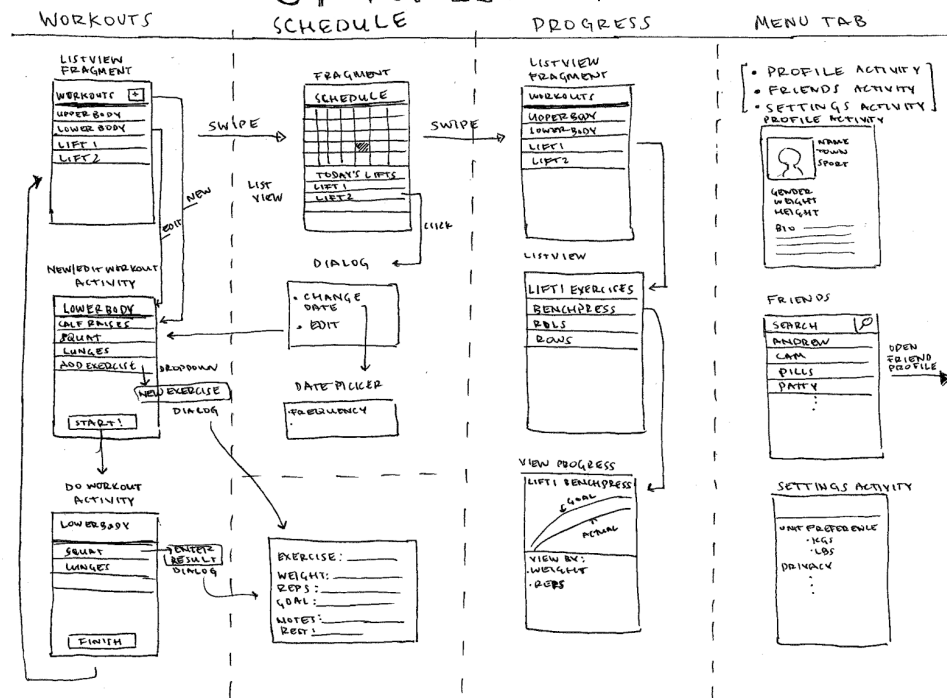 WORKOUTS
SCHEDULE
PROGRESS
MENU TAB
LISTVIEW
FRAGMENT
WORKOUTS +
UPPER BODY
LOWER BODY
LIFT 1
LIFT 2
EDIT
NEW
SWIPE
NEW/EDIT WORKOUT
ACTIVITY
LOWER BODY
CALF RAISES
SQUAT
LUNGES
ADD EXERCISE
DROPDOWN
NEW EXERCISE
DIALOG
START!
DO WORKOUT
ACTIVITY
LOWERBODY
SQUAT
LUNGES
ENTER
RESULT
DIALOG
FINISH
FRAGMENT
SCHEDULE
TODAY'S LIFTS
LIFT 1
LIFT 2
LIST
VIEW
CLICK
SWIPE
DIALOG
• CHANGE
DATE
• EDIT
DATE PICKER
FREQUENCY
EXERCISE:
WEIGHT:
REPS:
GOAL:
NOTES:
REST:
LISTVIEW
FRAGMENT
WORKOUTS
UPPERBODY
LOWERBODY
LIFT1
LIFT2
LISTVIEW
LIFT1 EXERCISES
BENCHPRESS
RDLS
ROWS
VIEW PROGRESS
LIFT1 BENCHPRESS
GOAL
ACTUAL
VIEW BY:
• WEIGHT
• REPS
• PROFILE ACTIVITY
• FRIENDS ACTIVITY
• SETTINGS ACTIVITY
PROFILE ACTIVITY
NAME
TOWN
SPORT
GENDER
WEIGHT
HEIGHT
BIO
FRIENDS
SEARCH
ANDREW
CAM
PILLS
PATTY
OPEN
FRIEND
PROFILE
SETTINGS ACTIVITY
UNIT PREFERENCE
• KGS
• LBS
PRIVACY